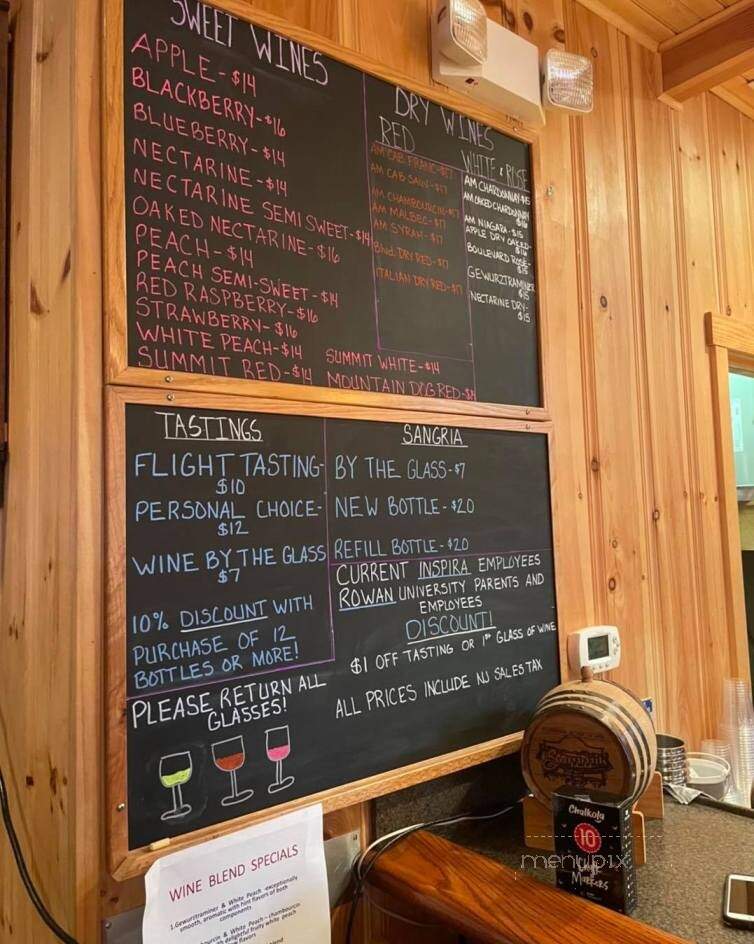 SWEET WINES
APPLE - $14
BLACKBERRY - $16
BLUEBERRY - $14
NECTARINE - $14
NECTARINE SEMI SWEET - $14
OAKED NECTARINE - $16
PEACH - $14
PEACH SEMI-SWEET - $14
RED RASPBERRY - $16
STRAWBERRY - $16
WHITE PEACH - $14
SUMMIT RED - $14
SUMMIT WHITE - $14
MOUNTAIN DOG RED - $14
DRY WINES
RED
AM CAB FRANC - $17
AM CAB SAUV - $17
AM CHAMBOURCIN - $17
AM MALBEC - $17
AM SYRAH - $17
Blvd. DRY RED - $17
ITALIAN DRY RED - $17
WHITE & ROSE
AM CHARDONNAY - $15
AM OAKED CHARDONNAY
$16
AM NIAGARA - $15
APPLE DRY OAKED -
$16
BOULEVARD ROSE -
$15
GEWURZTRAMINER
$15
NECTARINE DRY -
$15
TASTINGS
FLIGHT TASTING -
$10
PERSONAL CHOICE -
$12
WINE BY THE GLASS
$7
10% DISCOUNT WITH
PURCHASE OF 12
BOTTLES OR MORE!
PLEASE RETURN ALL
GLASSES!
SANGRIA
BY THE GLASS - $7
NEW BOTTLE - $20
REFILL BOTTLE - $20
CURRENT INSPIRA EMPLOYEES
ROWAN UNIVERSITY PARENTS AND
EMPLOYEES
DISCOUNT!
$1 OFF TASTING OR 1st GLASS OF WINE
ALL PRICES INCLUDE NJ SALES TAX
WINE BLEND SPECIALS
1. Gewurztraminer & White Peach - exceptionally
smooth, aromatic with hint flavors of both
components
& White Peach - chambourcin
delightful fruity white peach
flavors
Chalkola
10
Markers
menupix